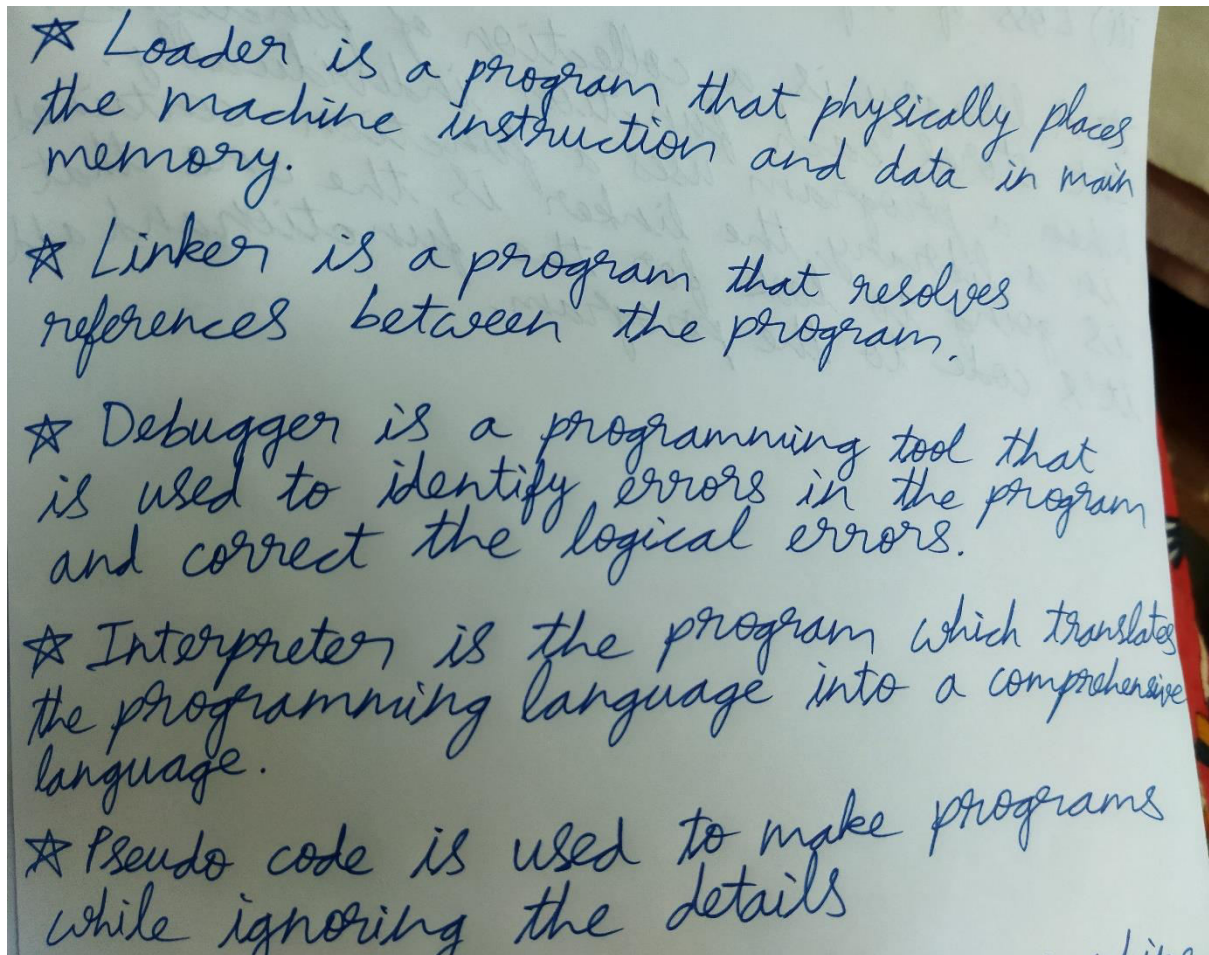 ☆ Loader is a program that physically places
the machine instruction and data in main
memory.
☆ Linker is a program that resolves
references between the program.
☆ Debugger is a programming tool that
is used to identify errors in the program
and correct the logical errors.
☆ Interpreter is the program which translates
the programming language into a comprehensive
language.
☆ Pseudo code is used to make programs
while ignoring the details